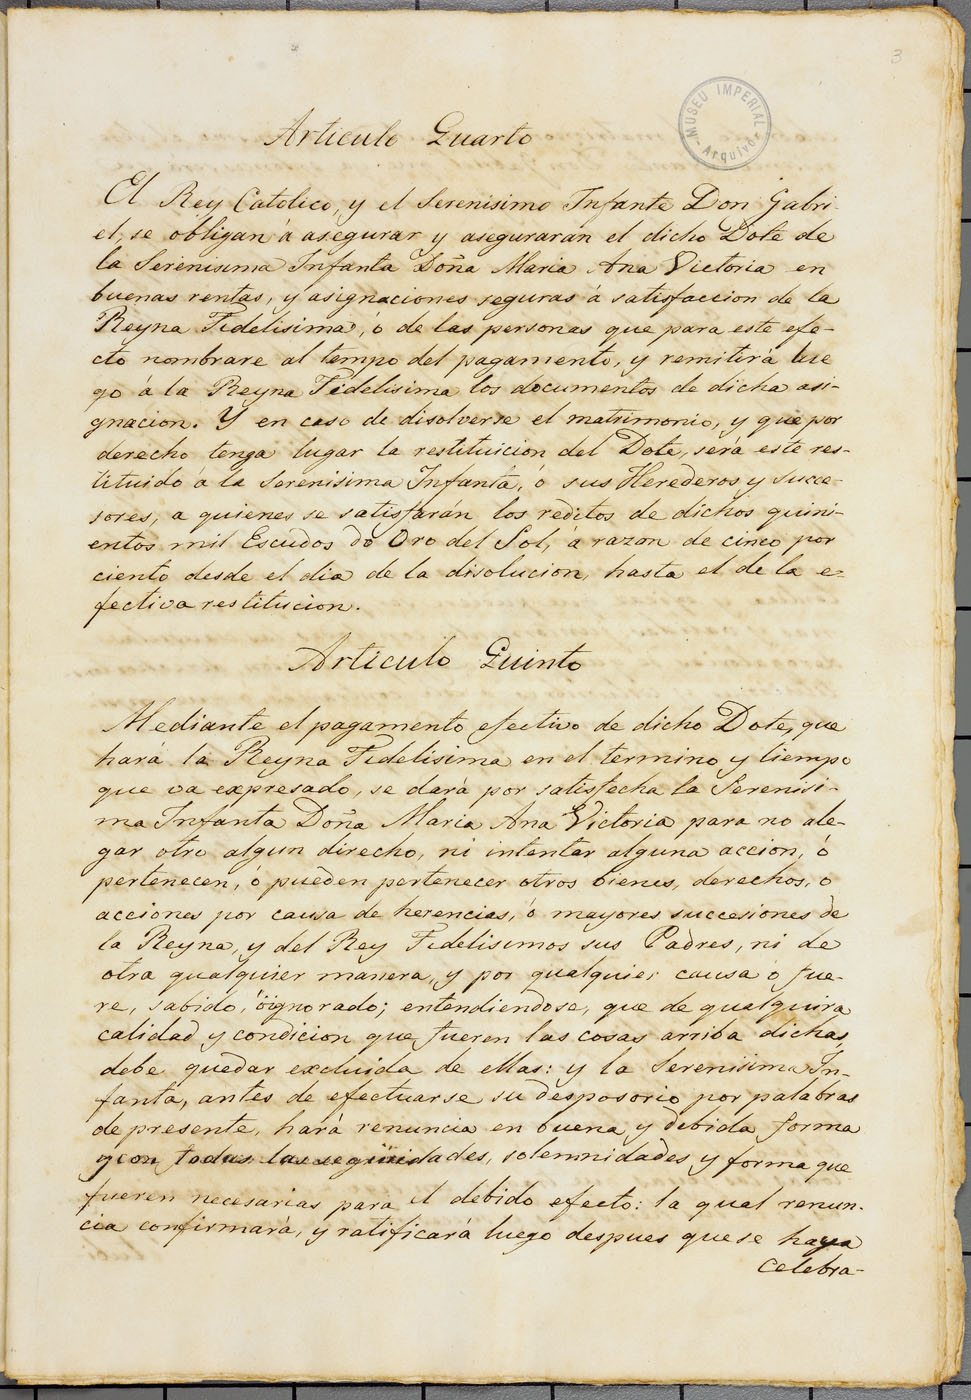 3
MUSEU IMPERIAL
Arquivo
Articulo Quarto
El Rey Catolico, y el Serenisimo Infante Don Gabri-
el, se obligan á asegurar y aseguraran el dicho Dote de
la Serenisima Infanta Doña Maria Ana Victoria en
buenas rentas, y asignaciones seguras á satisfaccion de la
Reyna Fidelisima, ó de las personas que para este efe-
cto nombrare al tempo del pagamento, y remitirá lue
go á la Reyna Fidelisima los documentos de dicha asi-
gnacion. Y en caso de disolverse el matrimonio, y que por
derecho tenga lugar la restituicion del Dote, será este res-
tituido á la Serenisima Infanta, ó sus Herederos y succe-
sores, a quienes se satisfarán los reditos de dichos quini-
entos mil Escudos do Oro del Sol, á razon de cinco por
ciento desde el dia de la disolucion, hasta el de la e-
fectiva restitucion.
Articulo Quinto
Mediante el pagamento efectivo de dicho Dote, que
hará la Reyna Fidelisima en el termino y tiempo
que va expresado, se dará por satisfecha la Serenisi-
ma Infanta Doña Maria Ana Victoria para no ale-
gar otro algun direcho, ni intentar alguna accion, ó
pertenecen, ó pueden pertenecer otros bienes, derechos, o
acciones por causa de herencias, ó mayores successiones de
la Reyna, y del Rey Fidelisimos sus Padres, ni de
otra qualquier manera, y por qualquier causa ó fue-
re, sabido, óignorado; entendiendose, que de qualquira
calidad y condicion que fueren las cosas arriba dichas,
debe quedar excluida de ellas: y la Serenisima In-
fanta, antes de efectuarse su desposorio por palabras
de presente, hará renuncia en buena y debida forma
y con todas las seguridades, solemnidades y forma que
fueren necesarias para el debido efecto: la qual renun-
cia confirmará, y ratificará luego despues que se haya
celebra-